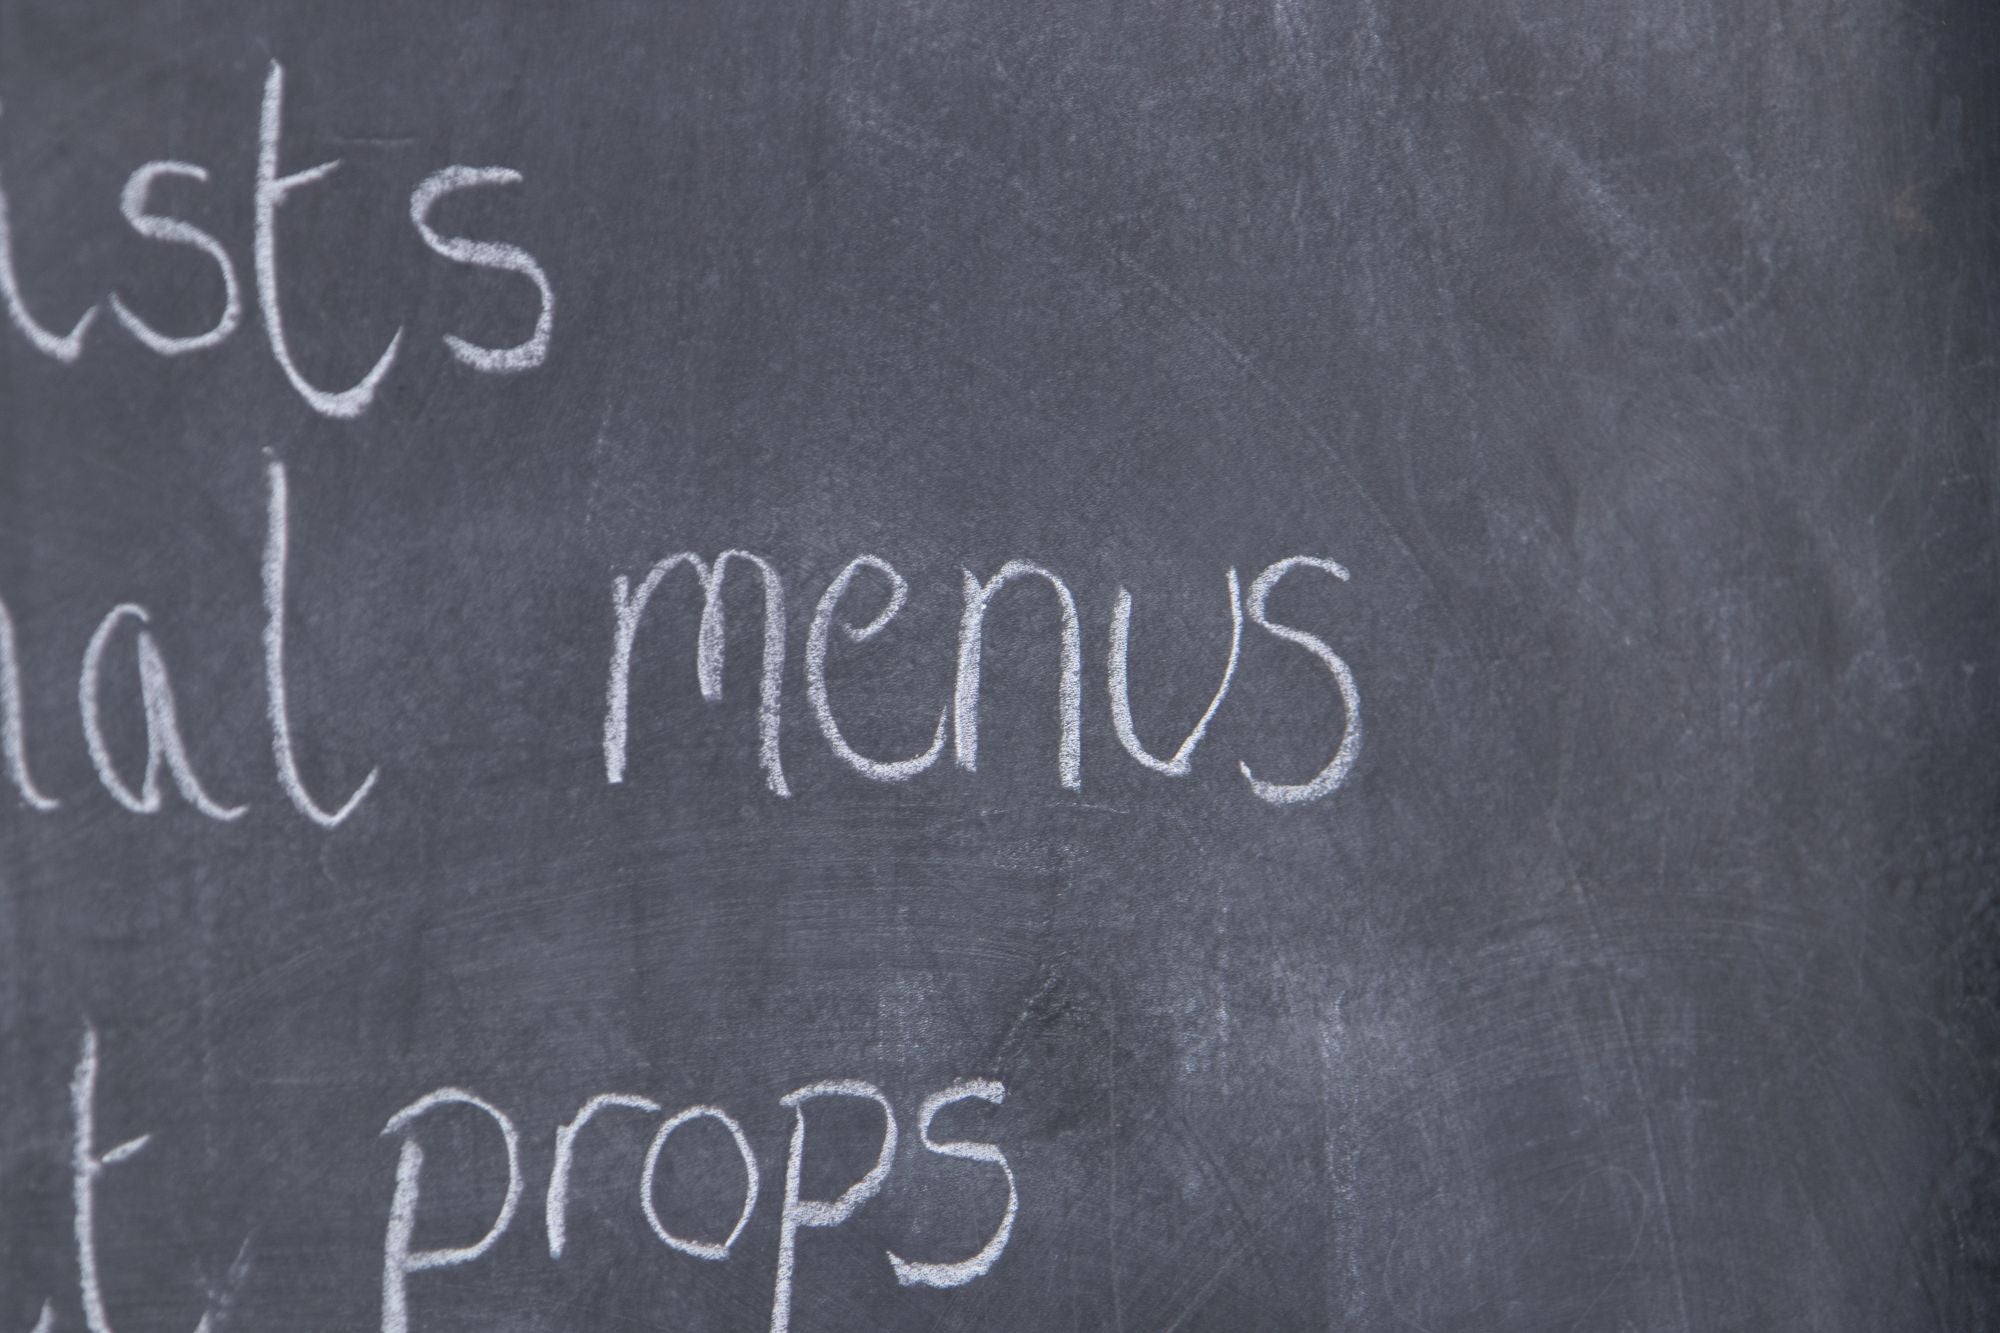 ists
nal menus
t props